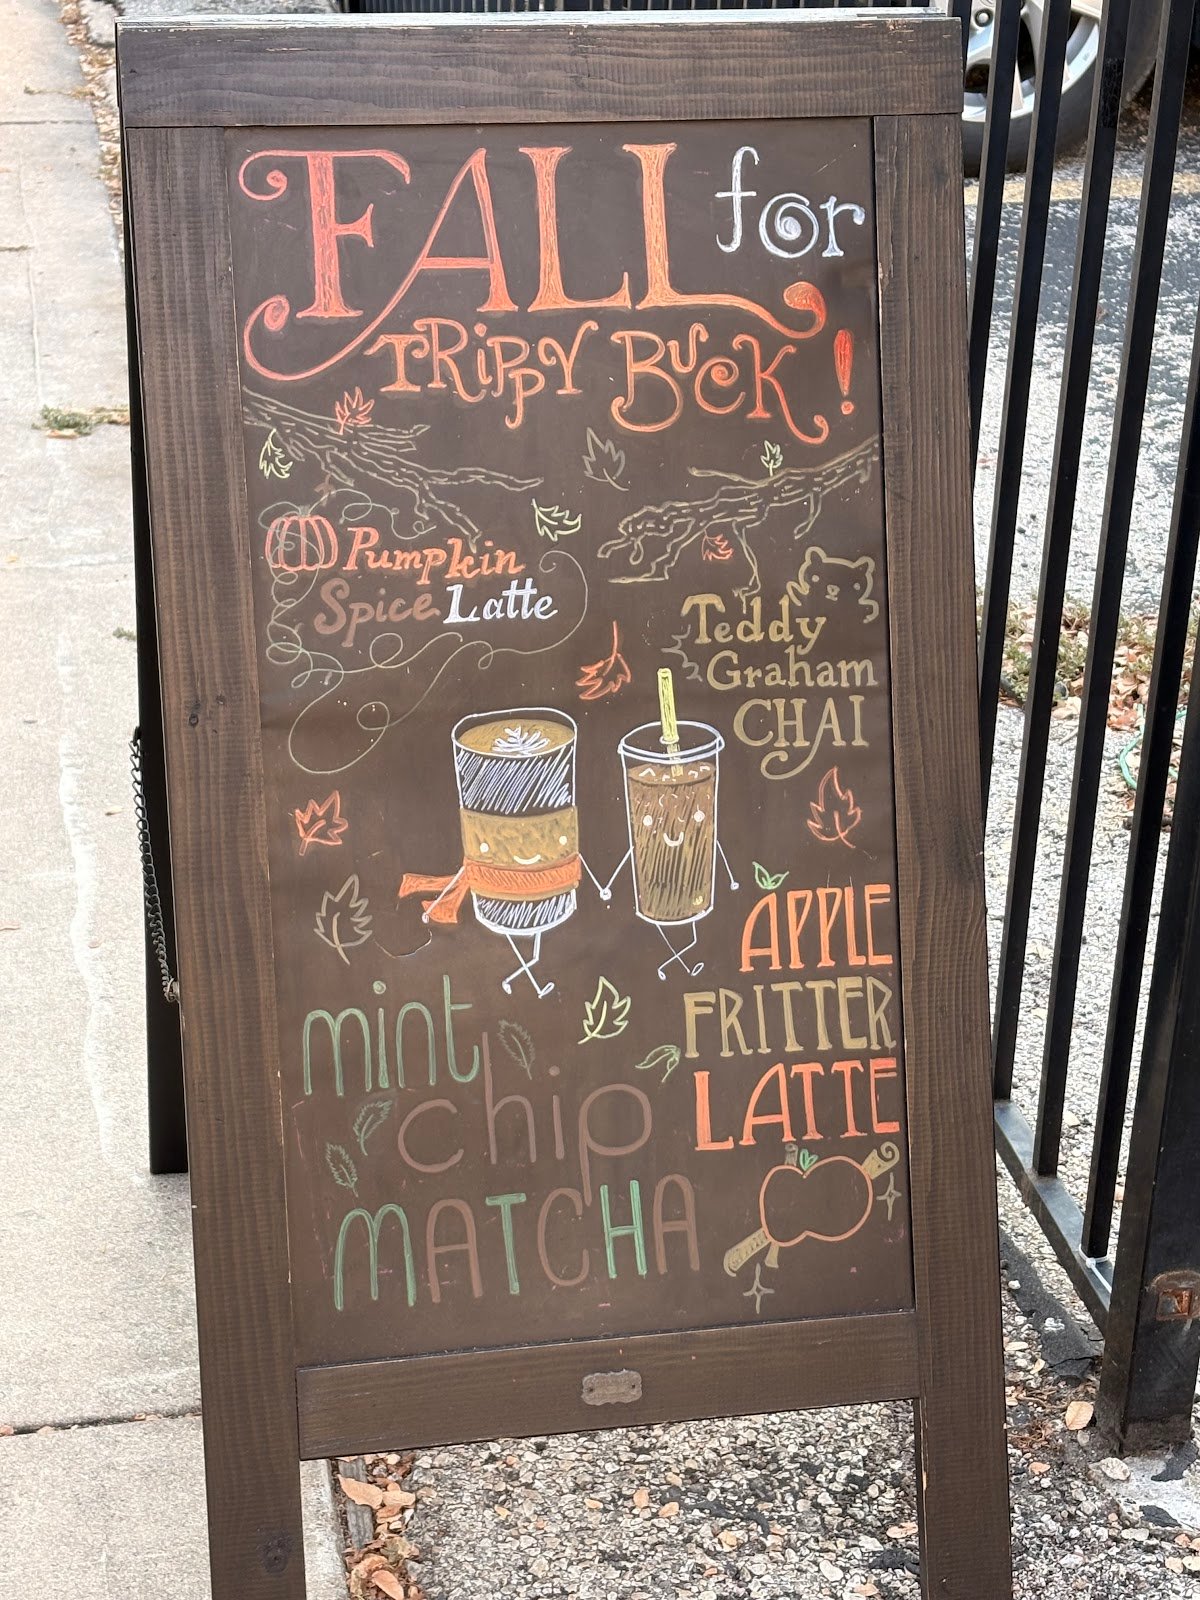 FALL for
TRiPPY BUCK!
Pumpkin
Spice Latte
Teddy
Graham
CHAI
APPLE
FRITTER
LATTE
mint
chip
MATCHA